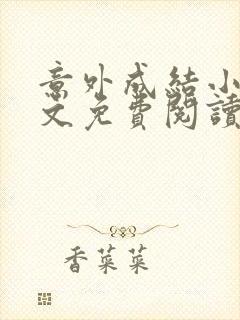 意外成結小
文免費閱讀
香菜菜